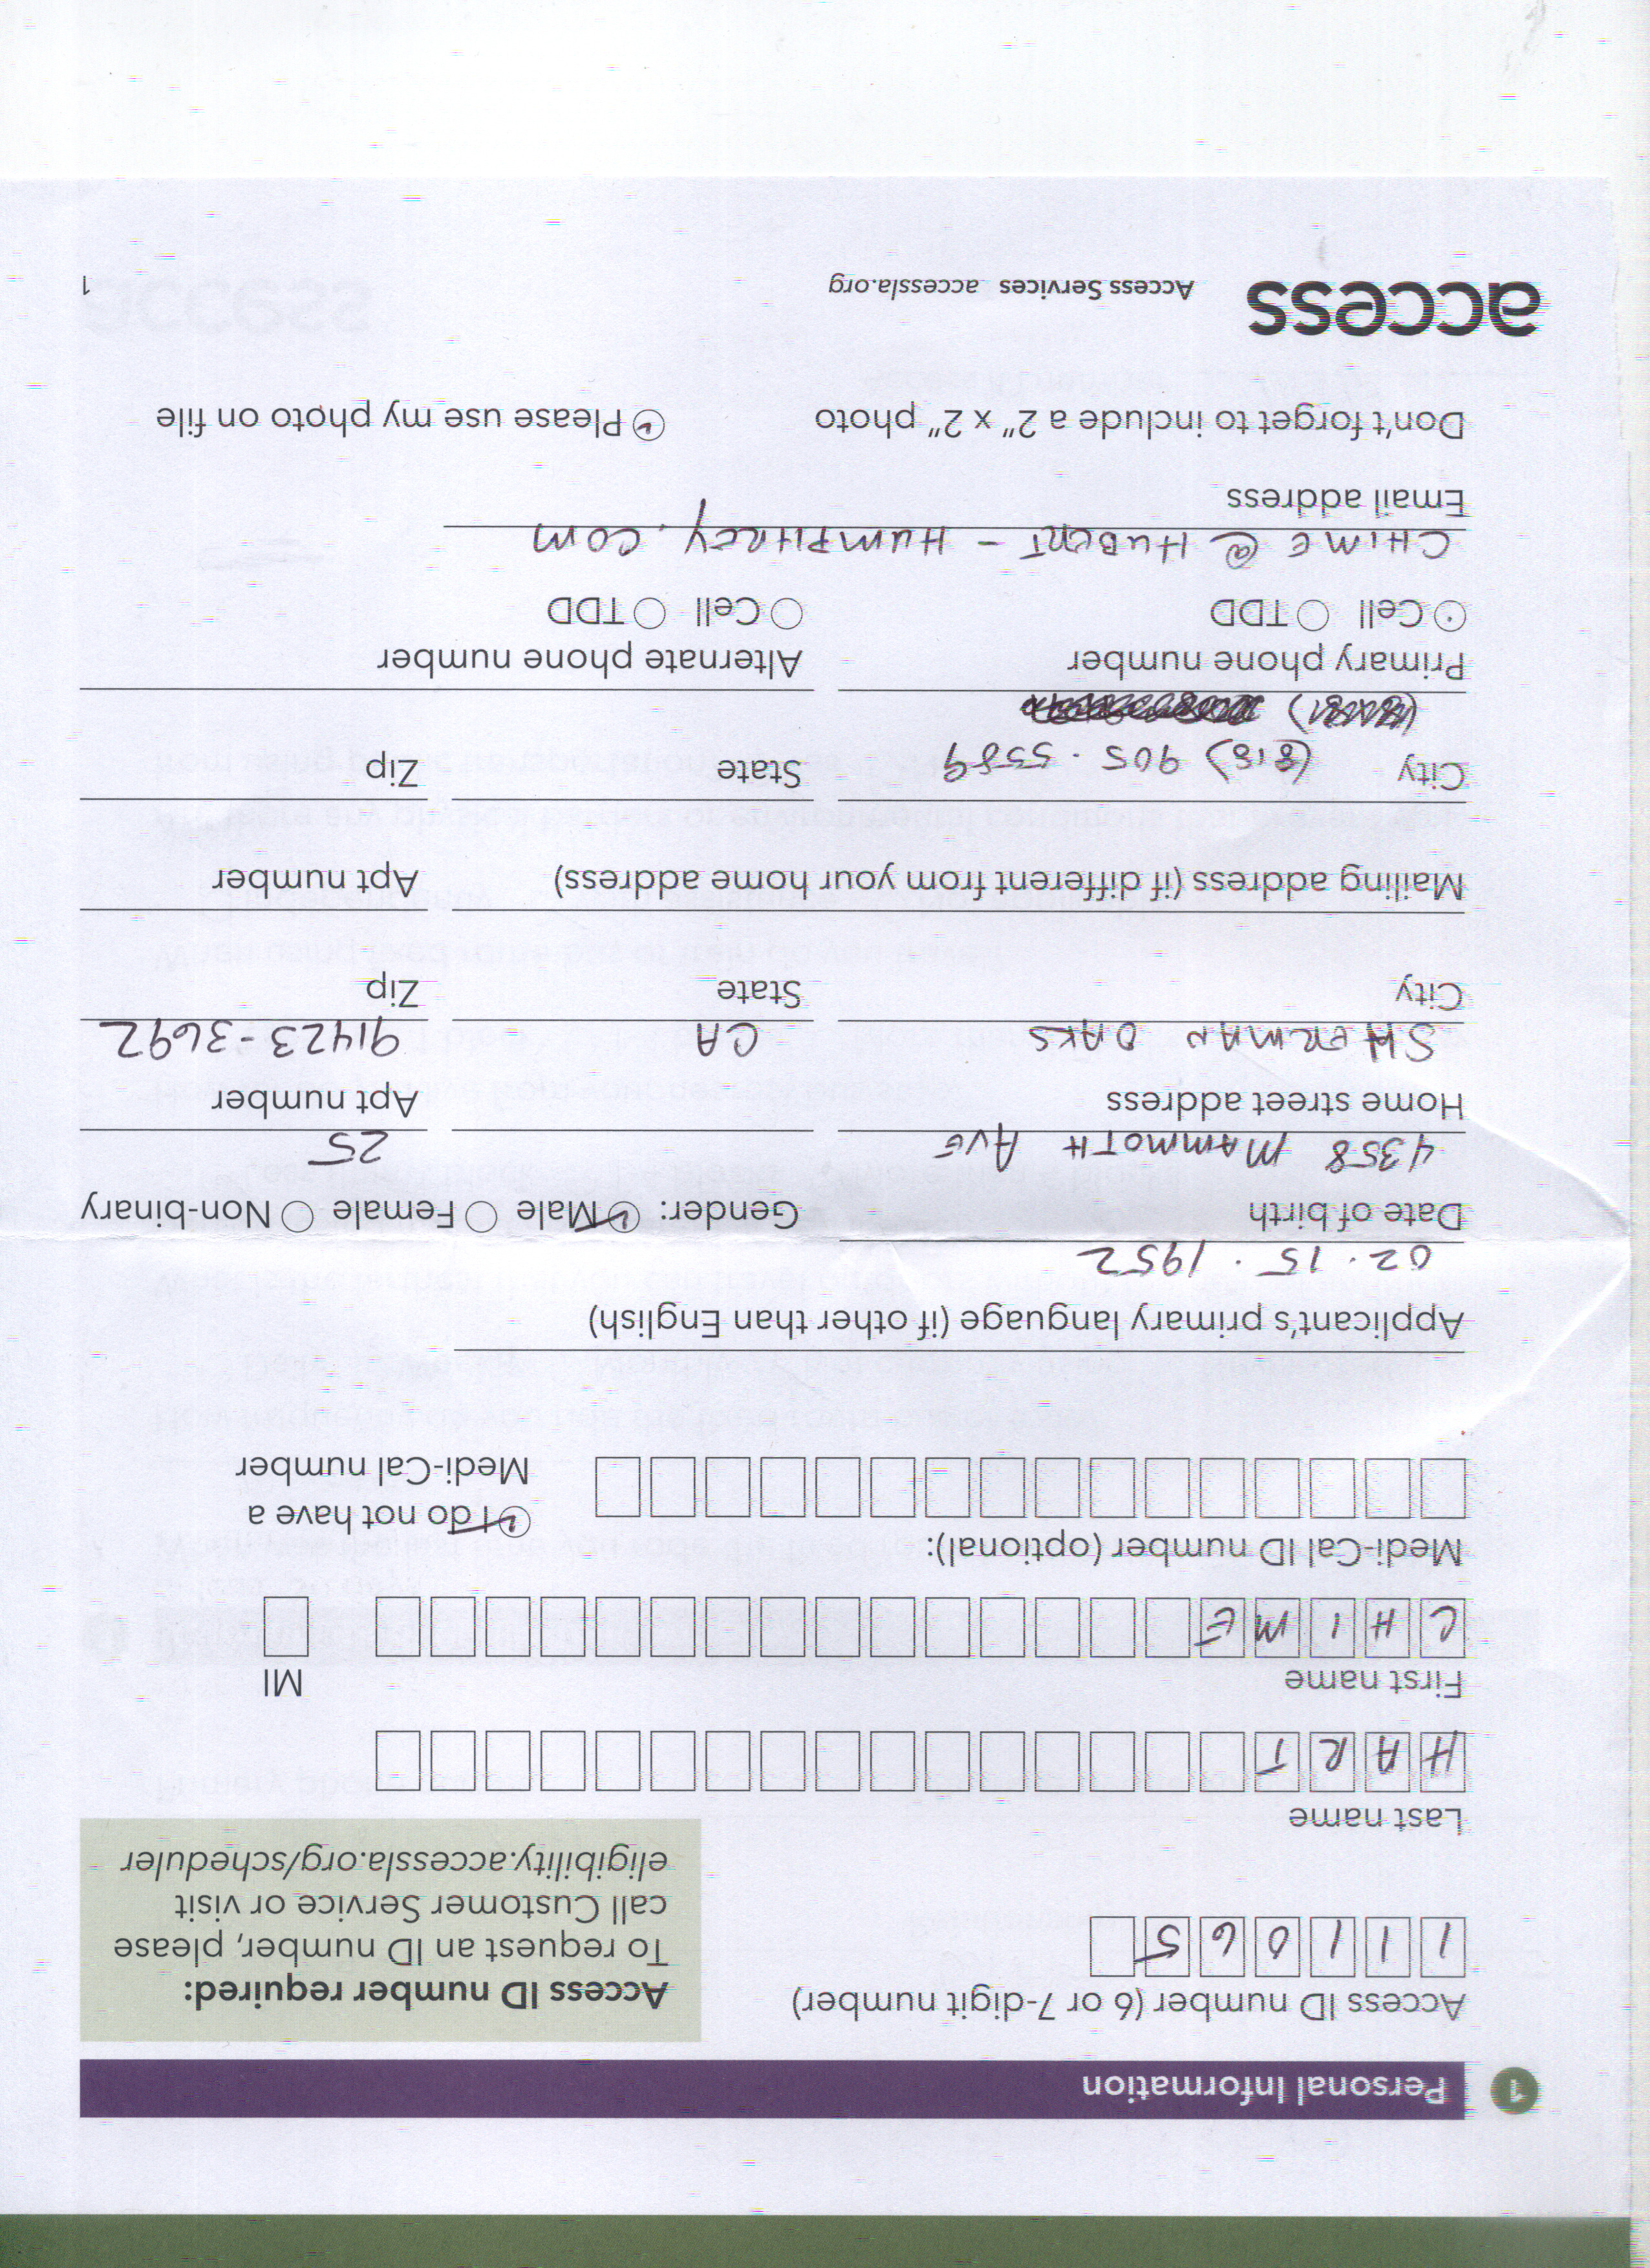 1 Personal Information
Access ID number (6 or 7-digit number)
111065
Access ID number required:
To request an ID number, please
call Customer Service or visit
eligibility.accessla.org/scheduler
Last name
HART
First name MI
CHIME
Medi-Cal ID number (optional):
I do not have a
Medi-Cal number
Applicant's primary language (if other than English)
02.15.1952
Date of birth Gender: Male Female Non-binary
4358 MAMMOTH AVE 25
Home street address Apt number
SHERMAN OAKS CA 91423-3692
City State Zip
Mailing address (if different from your home address) Apt number
City State Zip
(818) 905.5589
Primary phone number Alternate phone number
Cell TDD Cell TDD
CHIME@HUBERT-HUMPHREY.COM
Email address
Don't forget to include a 2" x 2" photo Please use my photo on file
access Access Services accessla.org 1